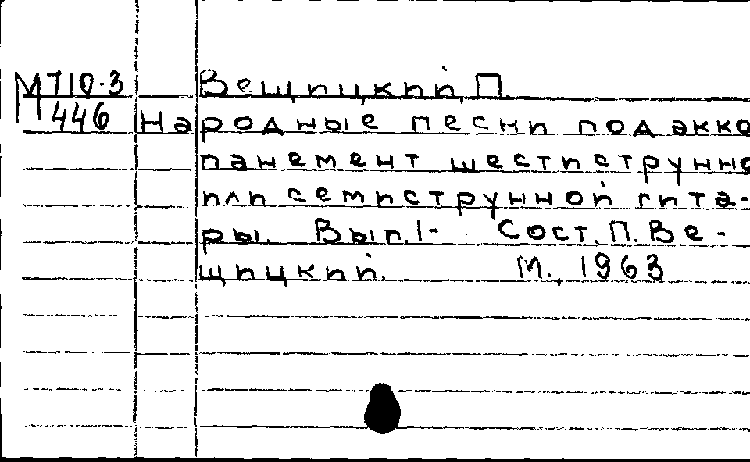 М710-3 Вещицкий, П.
446 Народные песни под акко
панемент шестиструнно
или семиструнной гита-
ры. Вып. 1- Сост. П. Ве-
щицкий. М., 1963